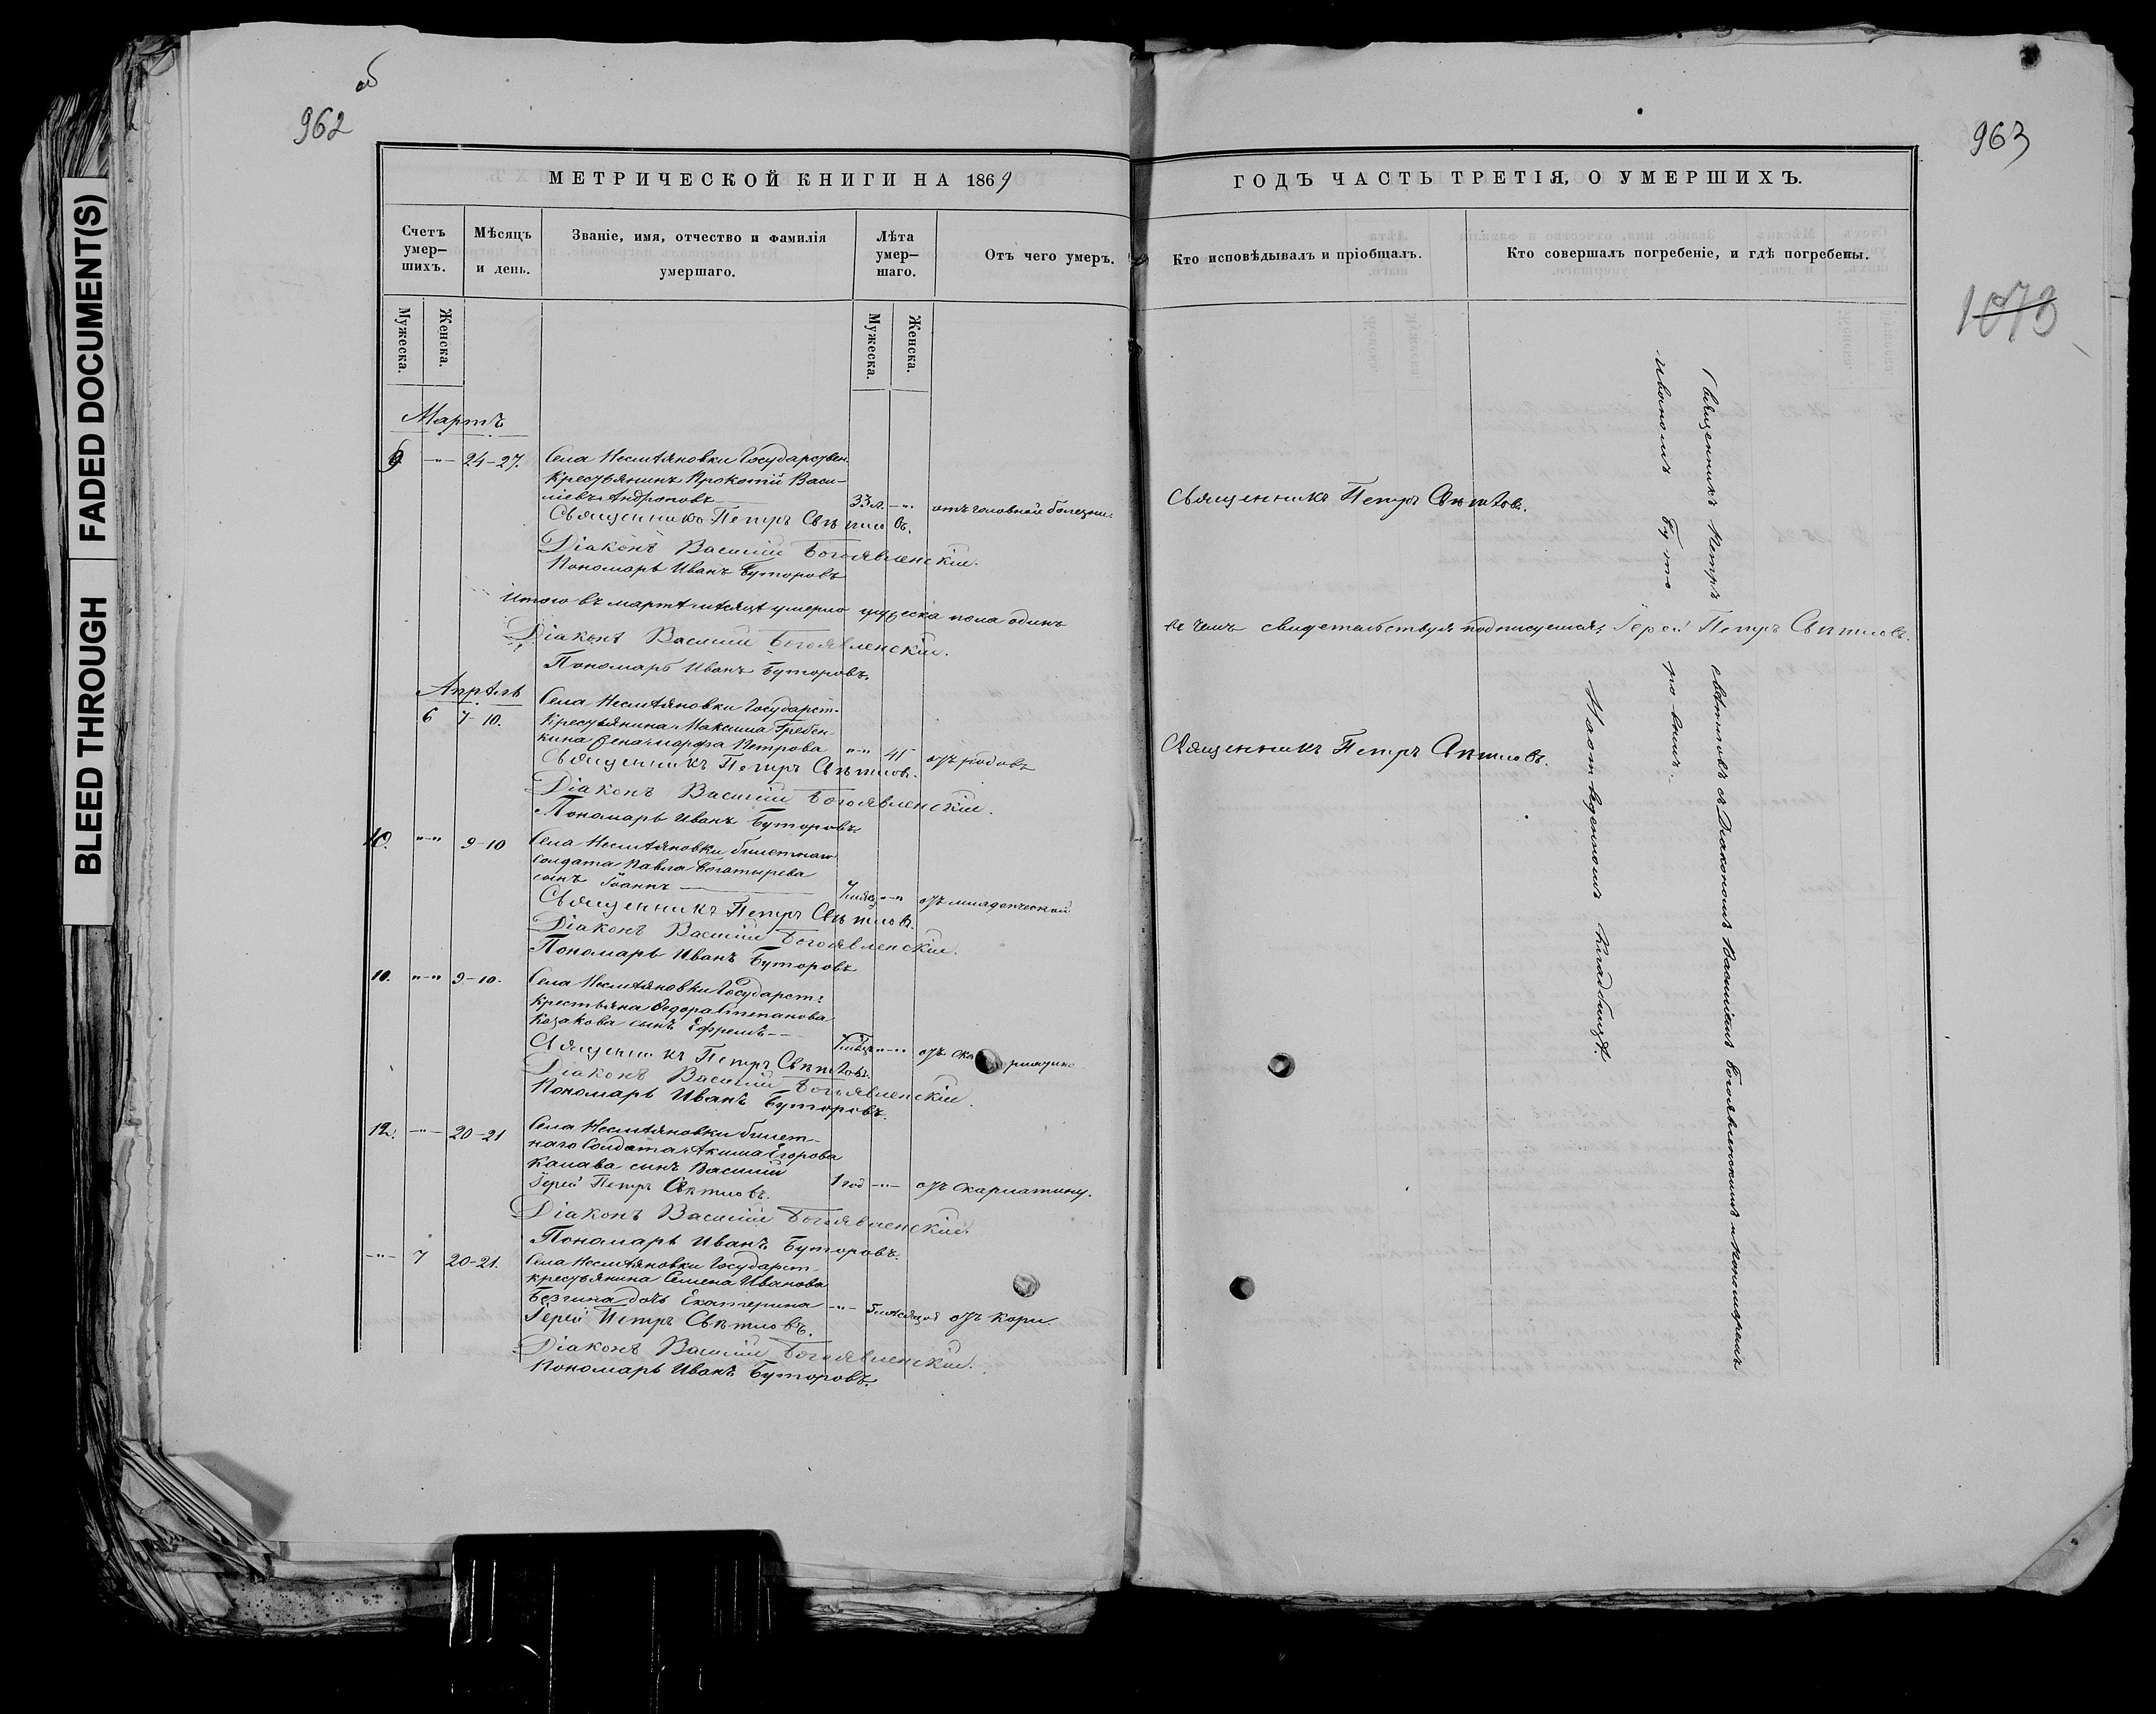 BLEED THROUGH
FADED DOCUMENT(S)
962
об
МЕТРИЧЕСКОЙ КНИГИ НА 1869
Счетъ умер-шихъ.
Мѣсяцъ и день.
Званіе, имя, отчество и фамилія умершаго.
Лѣта умер-шаго.
Отъ чего умеръ.
Мужеска.
Женска.
Мужеска.
Женска.
Мартъ
9 -"- 24-27.
Села Несмѣяновки Государствен.
крестьянинъ Прокопій Васи-
ліевъ Андроповъ 33 л. -"- отъ головной болезни.
Священникъ Петръ Свѣтловъ.
Діаконъ Василій Богоявленскій.
Пономарь Иванъ Буторовъ
Итого въ мартѣ мѣсяцѣ умерло мужеска пола одинъ
Діаконъ Василій Богоявленскій.
Пономарь Иванъ Буторовъ.
Апрѣль
6 7-10.
Села Несмѣяновки Государст-
крестьянина Максима Гребен-
кина жена Петрова "-" 45 отъ родовъ
Священникъ Петръ Свѣтловъ.
Діаконъ Василій Богоявленскій.
Пономарь Иванъ Буторовъ
10. "-" 9-10
Села Несмѣяновки билетнаго
солдата Павла Богатырева
сынъ Іоаннъ 7 мѣсяц "-" отъ младенческой
Священникъ Петръ Свѣтловъ.
Діаконъ Василій Богоявленскій.
Пономарь Иванъ Буторовъ
11. "-" 9-10.
Села Несмѣяновки Государст:
крестьяна Ѳедора Степанова
Козакова сынъ Ефремъ "-" отъ ска рлатино
Священникъ Петръ Свѣтловъ.
Діаконъ Василій Богоявленскій.
Пономарь Иванъ Буторовъ.
12. -"- 20-21
Села Несмѣяновки билет-
наго Солдата Акима Егорова
сынъ Василій
Іерей Петръ Свѣтловъ. 1 год -"- отъ скарлатину.
Діаконъ Василій Богоявленскій.
Пономарь Иванъ Буторовъ.
-"- 7 20-21.
Села Несмѣяновки Государст-
крестьянина Семена Иванова
Безгина дочь Екатерина -"- мѣсяцой отъ кори
Іерей Петръ Свѣтловъ.
Діаконъ Василій Богоявленскій.
Пономарь Иванъ Буторовъ.
963
1073
ГОДЪ ЧАСТЬ ТРЕТІЯ, О УМЕРШИХЪ.
Кто исповѣдывалъ и пріобщалъ.
Кто совершалъ погребеніе, и гдѣ погребены.
Священникъ Петръ Свѣтловъ.
въ чемъ свидетельствуя подписуемся: Іерей Петръ Свѣтловъ.
Священникъ Петръ Свѣтловъ.
Священникъ Петръ Свѣтловъ съ Діакономъ Василіемъ Богоявленскимъ и Пономаремъ
Иваномъ Буторовымъ.
На отведенномъ кладбищѣ.